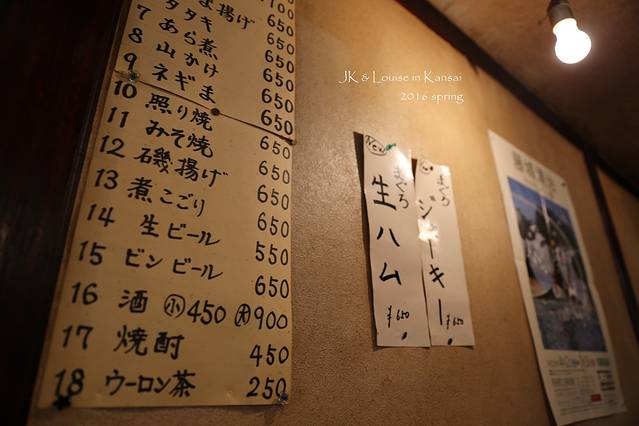 700
ま揚げ 650
タタキ 650
7 あら煮 650
8 山かけ 650
9 ネギま 650
10 照り焼 650
11 みそ焼 650
12 磯揚げ 650
13 煮こごり 650
14 生ビール 550
15 ビンビール 650
16 酒 ㊙小450 大900
17 焼酎 450
18 ウーロン茶 250
JK & Louise in Kansai
2016 spring
New
まぐろ
生ハム
¥650
まぐろ
ジャーキー
¥650